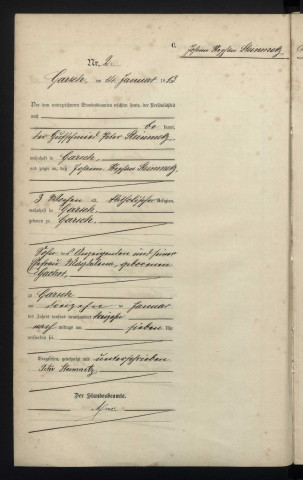 C.
Johann Stephan Steinmetz
Nr. 2.
Garsch, am 14. Januar 1913
Vor dem unterzeichneten Standesbeamten erschien heute, der Persönlichkeit
nach
be kannt,
der Hufschmied Peter Steinmetz,
wohnhaft in Garsch
und zeigte an, daß Johann Stephan Steinmetz,
3 Wochen a katholischer Religion,
wohnhaft in Garsch,
geboren zu Garsch,
Sohn des Anzeigenden und seiner
Ehefrau Magdalena, geborenen
zu Garsch
am dreizehn ten Januar
des Jahres tausend neunhundert dreizehn
nach mittags um sieben Uhr
verstorben sei.
Vorgelesen, genehmigt und unterschrieben
Peter Steinmetz
Der Standesbeamte.